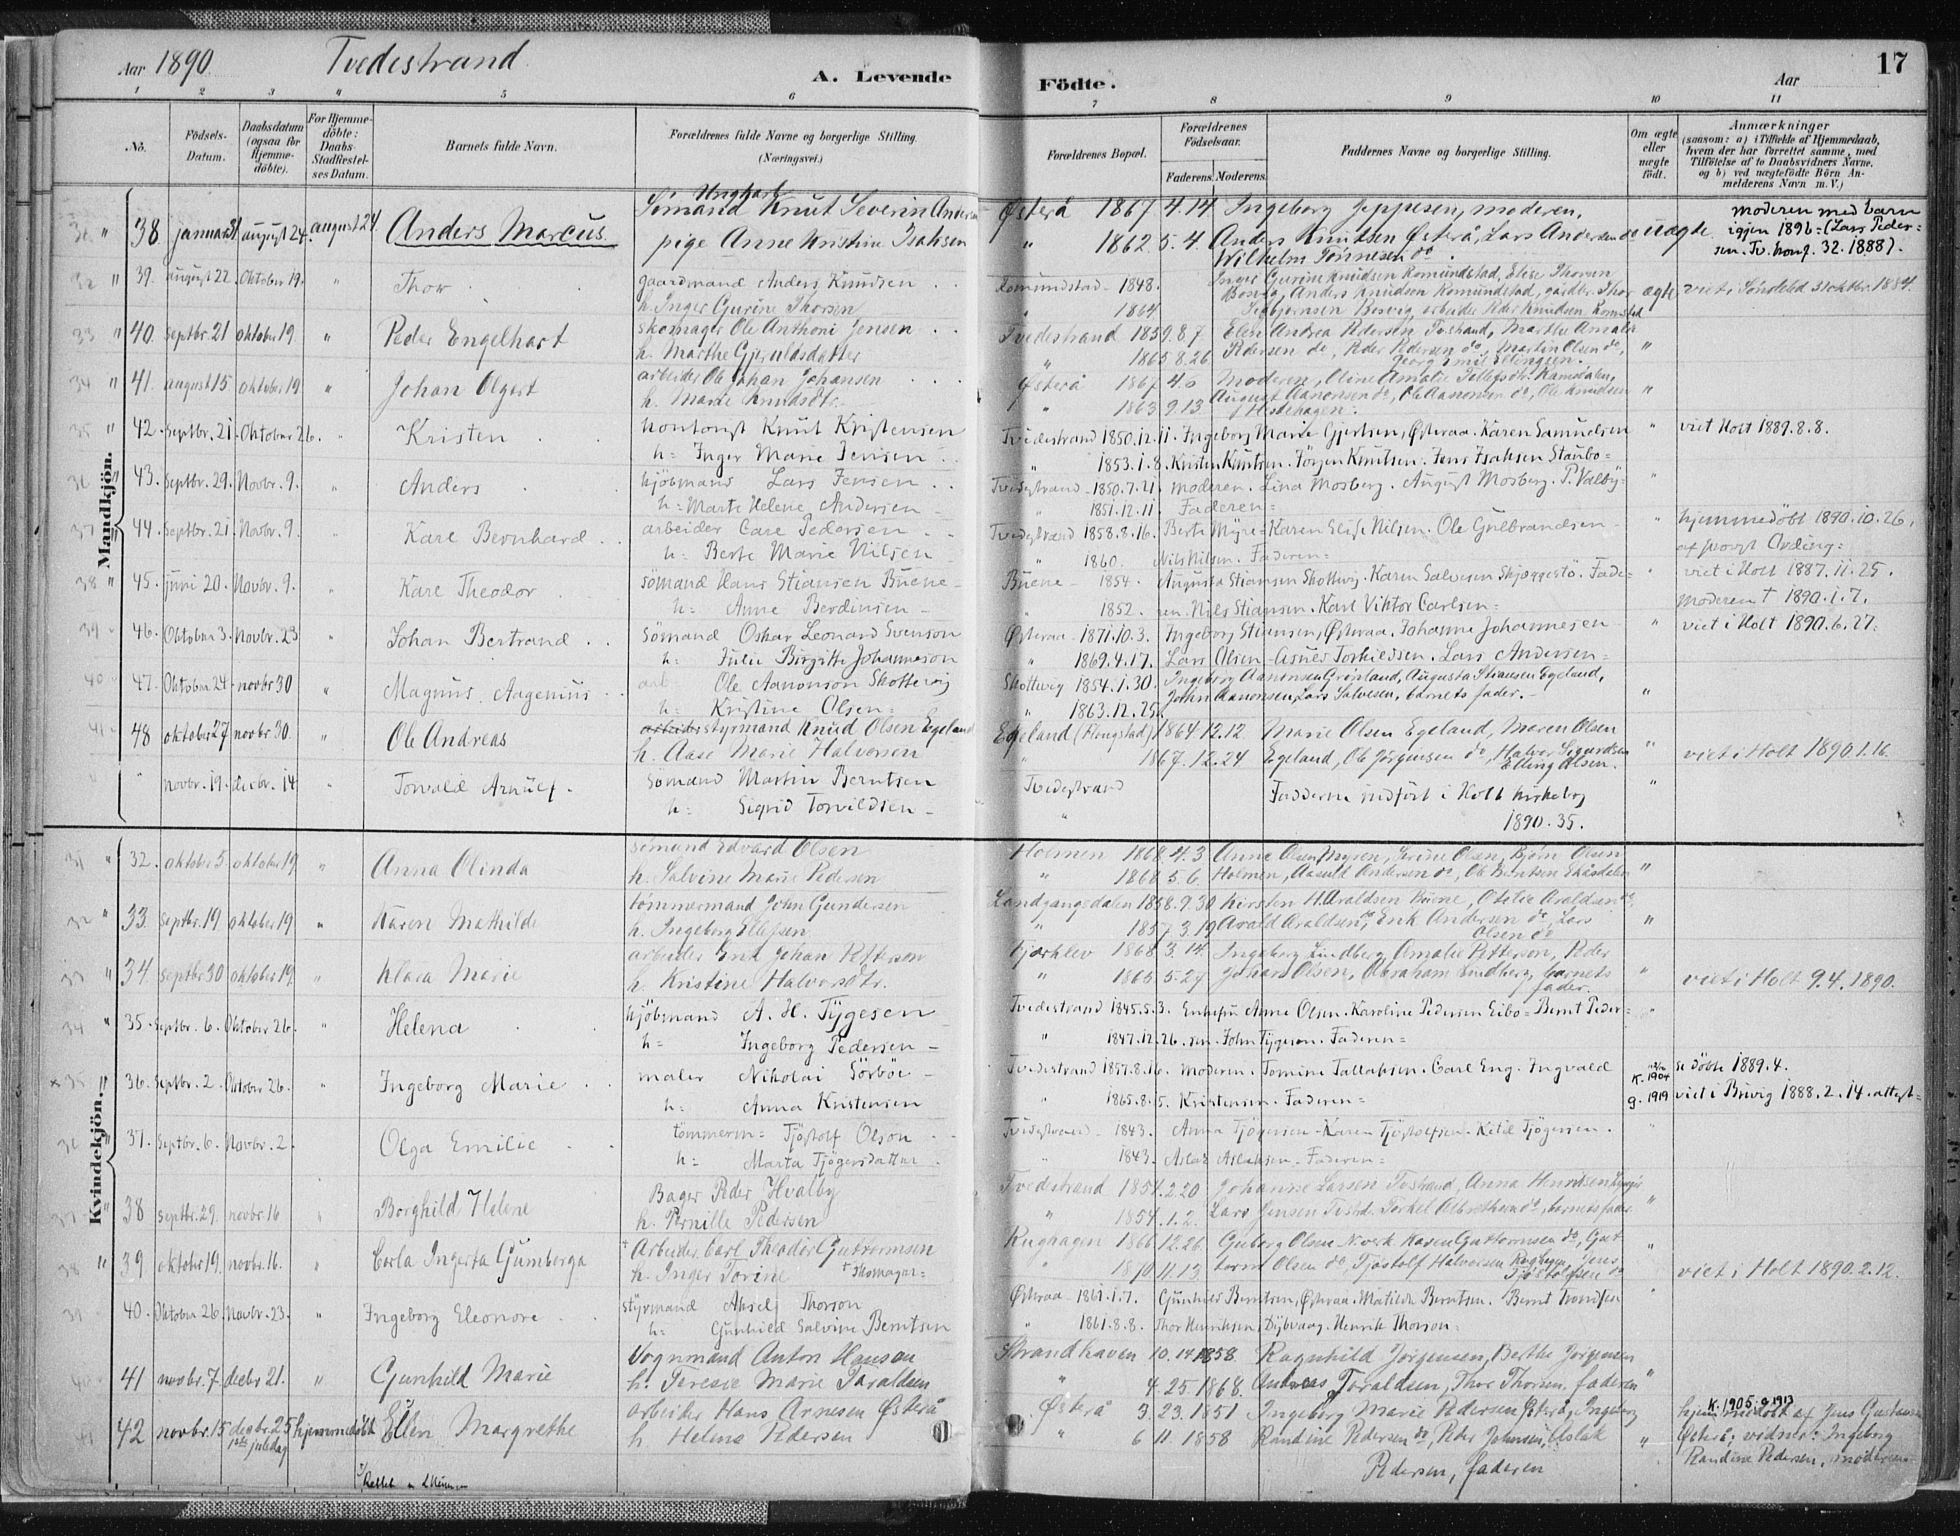 Aar 1890. Tvedestrand A. Levende Födte. Aar 17
1 2 3 4 5 6 7 8 9 10 11
No. Födsels-Datum. Daabsdatum (ogsaa for Hjemme-döbte). For Hjemme-döbte: Daabs-Stadfæstel-ses Datum. Barnets fulde Navn. Forældrenes fulde Navne og borgerlige Stilling. (Næringsvei.) Forældrenes Bopæl. Forældrenes Födselsaar. Faderens. Moderens. Faddernes Navne og borgerlige Stilling. Om ægte eller uægte födt. Anmærkninger (saasom: a) i Tilfælde af Hjemmedaab, hvem der har forrettet samme, med Tilföielse af to Daabsvidners Navne, og b) ved uægtefödte Börn An-melderens Navn m. V.)
Mandkjön.
38 januar 31 august 24. august 24 Anders Marcus. Ungkarl Sømand Knut Severin Andersen Østerå 1867 4.14 Ingeborg Jeppesen, moderen, moderen med barn
pige Anne Kristine Isaksen " 1862 5.4. Anders Knutsen Østerå, Lars Andersen do uægte igjen 1896 = (Lars Peder-
Wilhelm Tønnesen do. sen. Tv. konf. 32. 1888).
39. august 22. Oktober 19. " Thor gaardmand Anders Knudsen Komundstad 1848. Inger Gurine Knudsen Komundstad, Elise Thorsen
h. Inger Gurine Thorsen " 1864 Anders Knudsen Komundstad, gårdbr. Thor ægte, viet i Søndeled 31 oktbr. 1884.
40. septbr. 21 oktober 19 " Peder Engelhart skomager Ole Anthoni Jensen Tvedestrand 1859.8.7 Elen Andrea Pedersen Tvstrand, Marthe Amalie
h. Marthe Gjeruldsdatter " 1865 8.26 Pedersen do, Peder Pedersen do, Martin Olsen do, "
Georg Emil Ellingsen.
41. august 15 oktober 19 " Johan Olgert arbeider Ole Johan Johansen Østerå 1867 4.6 Moderen, Oline Amalie Tellefsdtr. Ramsdalen,
h. Marie Knudsdtr. " 1863 9.13 August Aanonsen do, Ole Aanonsen do, Ole Knudsen "
Hestehagen.
42. Septbr. 21. Oktober 26. " Kristen kontorist Knut Kristensen Tvedestrand 1850.12.11. Ingeborg Marie Gjertsen, Østeraa. Karen Samuelsen " viet Holt 1889.8.8.
h= Inger Marie Jensen " 1853.1.8. Kristen Knutsen. Jørgen Knutsen. Jens Isaksen Staubo=
43. Septbr. 29. Novbr. 9. " Anders kjöbmand Lars Jensen Tvedestrand 1850.7.21. moderen. Lina Mosberg. August Mosberg. P. Valby= "
h= Marte Helene Andersen " 1851.12.11. Faderen=
44. Septbr. 21. Novbr. 9. " Karl Bernhard arbeider Carl Pedersen Tvedestrand 1858.8.16. Berte Myre= Karen Elise Nilsen. Ole Gulbrandsen " hjemmedöbt 1890.10.26.
h= Berte Marie Nilsen " 1860. Nils Nilsen. Faderen=
45. juni 20. Novbr. 9. " Karl Theodor sömand Hans Stiansen Buene Buene 1854. Augusta Stiansen Skottevig. Karen Salvesen Skjeggestö. Fade- " viet i Holt 1887.11.25.
h= Anne Berdinsen " 1852. ren. Nils Stiansen. Karl Viktor Carlsen= moderen † 1890.1.7.
46. Oktober 3. Novbr. 23 " Johan Bertrand sömand Oskar Leonard Svenson Østeraa 1871.10.3. Ingeborg Stiansen, Østeraa. Johanne Johannesen " viet i Holt 1890.6.27.
h= Julie Birgitte Johanneson " 1869.4.17. Lars Olsen. Torkildsen. Lars Andersen=
47. Oktober 24. novbr 30 " Magnus Aagenius arb. Ole Aanonson Skottevig Skottevig 1854.1.30. Ingeborg Aanonsen Grönland, Augusta Stiansen Egeland,
h= Kristine Olsen= " 1863.12.25. John Aanonsen, Lars Salvesen, barnets fader. "
48 oktober 27 novbr 30. " Ole Andreas styrmand Knud Olsen Egeland Egeland 1864 12.12 Marie Olsen Egeland, Maren Olsen
h. Aase Marie Halvorsen " 1867.12.24 Egeland, Ole Jörgensen do, Halvor Sigurdsen " viet i Holt 1890.1.16.
Elling Olsen.
" novbr. 19. decbr. 14 " Torvald Arnulf. Sömand Martin Berntsen Tvedestrand Fadderne indfört i Holt kirkebog "
h= Sigrid Torvildsen " 1890.35.
Kvindekjön.
32. oktober 5. oktober 19 " Anna Olinda sömand Edvard Olsen Holmen 1868.4.3 Anna Olsen Myren, Serine Olsen, Björn Olsen
h. Salvine Marie Pedersen " 1868 5.6 Holmen, Aasuld Andersen do, Ole Berntsen Skårdalen "
33. septbr. 19 oktober 19 " Karen Mathilde tömmermand John Gundersen Landgangsdalen 1858.9.30 Kirsten H. Araldsen Buene, Otilie Araldsen do.
h. Ingeborg Olefsen " 1857 3.19 Arald Araldsen do, Erik Andersen do, Lars "
Olsen do
34. septbr 30 oktober 19 " Klara Marie arbeider Erik Johan Petterson Bjørklev 1868 3.14. Ingeborg Lindberg, Amalie Petterson, Peder
h. Kristine Halvorsdtr. " 1865 5.27 Johan Olsen, Abraham Lindberg, barnets " viet i Holt 9.4.1890.
fader.
35. Septbr. 6. Oktober 26. " Helena kjöbmand A. H. Tygesen Tvedestrand 1845.5.3. Enkefru Anne Olsen. Karoline Pedersen Eibo= Bernt Peder- "
h= Ingeborg Pedersen " 1847.12.26. sen. John Tygeson. Faderen=
36. Septbr. 2. Oktober 26. " Ingeborg Marie maler Nikolai Sörböe Tvedestrand 1857.8.16. moderen. Tomine Tallaksen. Carl Eng. Ingvald K. 1904 se döbte 1889.4.
h= Anna Kristensen " 1865.8.5. Kristensen. Faderen= g. 1919 viet i Brevig 1888.2.14. attest=
37. Septbr. 6. Novbr. 2. Olga Emilie tömmerm= Tjöstolf Olson Tvedestrand 1843. Anna Tjögersen. Karen Tjöstolfsen. Ketil Tjögersen. "
h= Marta Tjögersdatter " 1843. Aslak Aslaksen. Faderen=
38 septbr. 29. novbr. 16 " Borghild Helene Bager Peder Hvalby Tvedestrand 1854.2.20 Johanne Larsen Tvstrand, Anna Henriksen
h. Pernille Pedersen " 1854.1.2. Lars Jensen Tvstrd. Torkel Olbrethsen do, barnets fader "
39 oktober 19. novbr. 16. " Carla Ingerta Gumberga † Arbeider. Carl Theodor Guttormsen Rughagen 1866 12.26. Guborg Olsen N.verk Karen Guttormsen do, Gut- "
h. Inger Torine † Skomager= " 1870 11.13 torm Olsen do, Tjöstolf Halvorsen Rughagen, Jens viet i Holt 1890.2.12.
Tjöstolfsen do
40. Oktober 26. Novbr. 23. " Ingeborg Eleonore styrmand Aksel Thorson Østeraa 1861.1.7. Gunhild Berntsen, Østeraa. Matilde Berntsen. Bernt Tronsen "
h= Gunhild Salvine Berntsen " 1861.8.8. Thor Henriksen, Dybvaag. Henrik Thorson=
41 novbr. 7 decbr 21. " Gunhild Marie Vognmand Anton Hansen Strandhaven 10.14 1858 Ragnhild Jörgensen, Berthe Jörgensen
h. Terese Marie Taraldsen " 4.25 1868. Andreas Toraldsen, Thor Thorsen. faderen "
42 novbr. 15 decbr. 25 hjemmedöbt Ellen Margrethe arbeider Hans Arnesen Østerå Østerå 3.23.1851 Ingeborg Marie Pedersen Østerå, Ingeborg K. 1905. g 1913 hjemmedöbt af Jens Gustavsen
1ste juledag h. Helene Pedersen " 6 11.1858 Randine Pedersen do, Peder Johnsen, Aslak " Østerå; vidner: Ingeborg
Pedersen, faderen Randine Pedersen, moderen